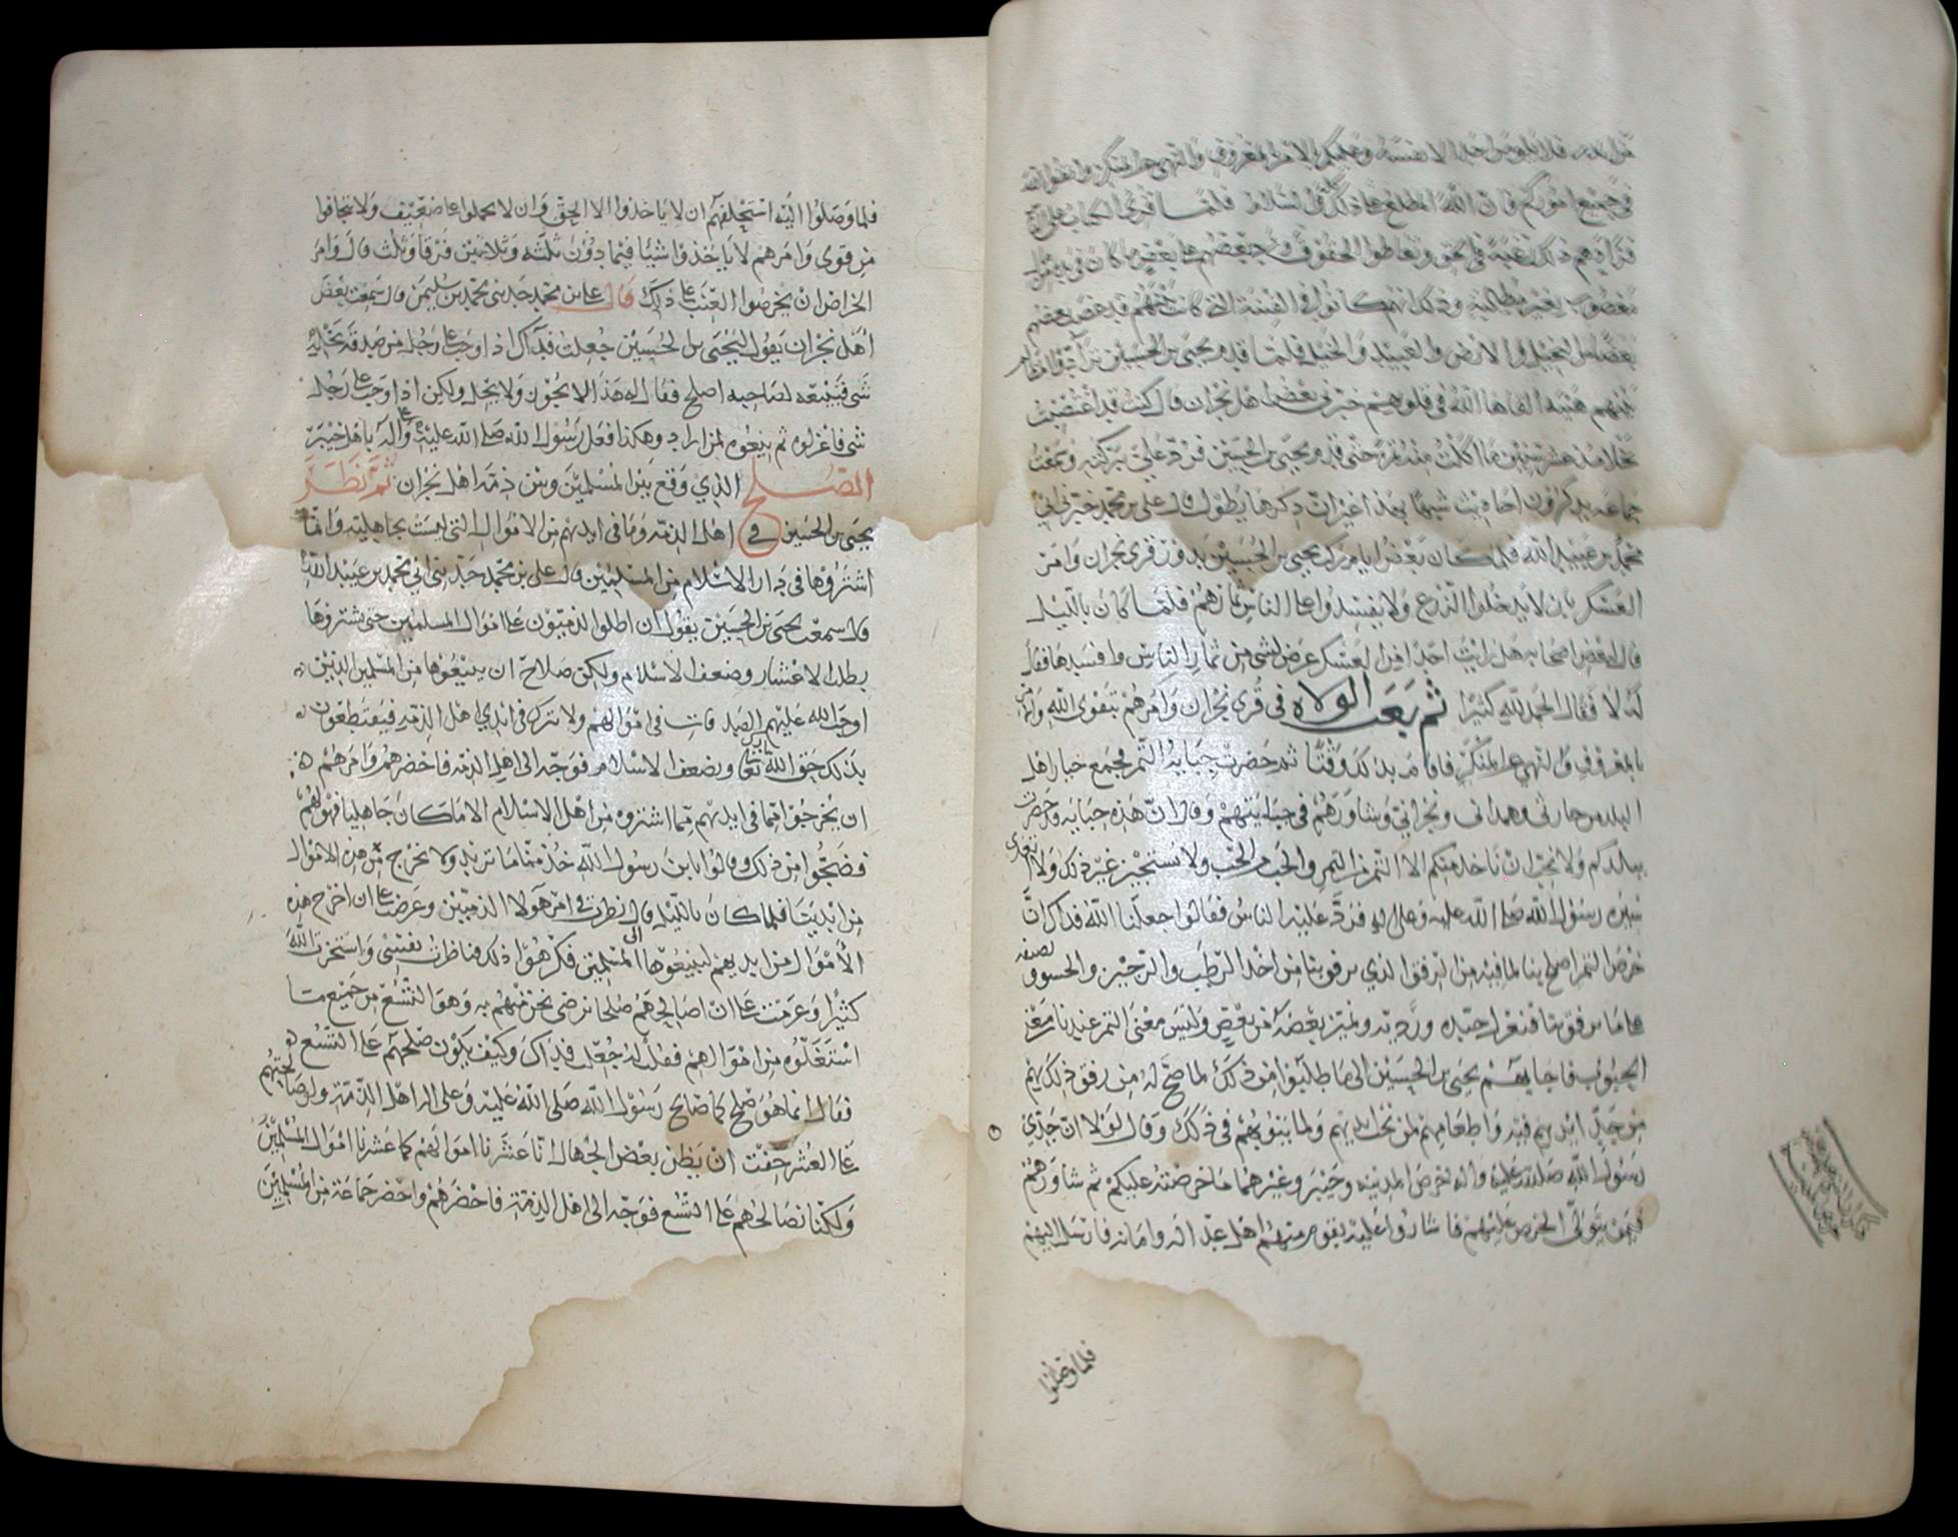 فلا يلومن احد الا نفسه وعليكم بالامر بالمعروف والنهي عن المنكر واتقوا الله
في جميع اموركم فان الله المطلع على ذلك والسلام فلما قرئ الكتاب على
فزادهم ذلك رغبة في الحق وتعاطوا الحقوق بعضهم على بعض ما كان في يد
مغصوب بغير مطالبة وذلك انهم كانوا في الفتنة التي كانت بينهم قد غصب بعضهم
بعضا من النخيل والارض والعبيد والخيل فلما قدم يحيى بن الحسين
بينهم هيبة القاها الله في قلوبهم خبرني بعض اهل نجران قال كنت قد اغتصبت
نخلا منذ عشر سنين ما اكلت منه تمرة حتى قدم يحيى بن الحسين فرد علي ببركته وسمعت
جماعة يذكرون
محمد بن عبيد الله فلما كان بعض ايام ركب يحيى بن الحسين يدور في قرى نجران وامر
العسكر بان لا يدخلوا الزرع ولا يفسدوا على الناس ثمارهم فلما كان بالليل
قال لبعض اصحابه هل رايت احدا من العسكر عرض لشي من ثمار الناس وافسدها فقال
له لا فقال الحمد لله كثيرا ثم بعث الولاه في قرى نجران وامرهم بتقوى الله وامر
بالمعروف والنهي عن المنكر فاقام بذلك وقتا ثم حضرت جباية التمر فجمع خيار اهل
البلد من حارثي وهمداني ونجراني وشاورهم في جبايتهم وقال ان هذه جبايه قد حضرت
ببلدكم ولا نحب ان ناخذ منكم الا التمر من التمر والحب من الحب ولا نستجيز غير ذلك ولا نتعدى
سيره رسول الله صلى الله عليه وعلى اله فرد عليه الناس فقالوا جعلنا الله فداك ان
خرص التمر اصلح بنا لما فيه من الرفق الذي يرفق بنا من اخذ الرطب
الحبوب فاجابهم يحيى بن الحسين الى ما طلبوا من ذلك لما صح له من رفق ذلك بهم
ايديهم فيه واطعامهم لمن تحت ايديهم ولما ينوبهم في ذلك وقال لولا ان جدي
رسول الله صلى الله عليه واله خرص المدينه وخيبر وغيرهما ما خرصته عليكم ثم شاورهم
فيمن يتولى الخرص عليهم فاشاروا عليه بقوم منهم اهل عداله وامانه فارسل اليهم
فلما وصلوا
فلما وصلوا اليه استحلفهم ان لا ياخذوا الا الحق وان لا يحملوا على ضعيف ولا يحابوا
من قوي وامرهم لا ياخذوا شيئا فيما دون ثلثه وثلاثين فرقا وثلث قال وامر
الخراص ان يخرصوا العنب على ذلك قال علي بن محمد حدثني محمد بن سليمن قال سمعت بعض
اهل نجران يقول ليحيى بن الحسين جعلت فداك اذا وجب على رجل من صدقة نخله
شي فيبيعه لصاحبه اصلح فقال له هذا لا يجوز ولا يحل ولكن اذا وجب على رجل
شي فاعزلوه ثم بيعوه لمن اراد وهكذا فعل رسول الله صلى الله عليه وعلى آله باهل خيبر
الصلح الذي وقع بين المسلمين وبين ذمة اهل نجران ثم نظر
يحيى بن الحسين في اهل الذمه وما في ايديهم من الاموال التي ليست بجاهليه وانما
اشتروها في دار الاسلام من المسلمين قال علي بن محمد حدثني ابي محمد بن عبيد الله
قال سمعت يحيى بن الحسين يقول ان اطلق الذميون على اموال المسلمين حتى يشتروها
بطلت الاعشار وضعف الاسلام ولكن صلاح ان يبيعوها من المسلمين الذين
اوجب الله عليهم الصدقات في اموالهم ولا تترك في ايدي اهل الذمه فيقتطعون
بذلك حق الله تعالى ويضعف الاسلام فوجه الى اهل الذمه فاحضرهم وامرهم
ان يخرجوا مما في ايديهم مما اشتروه من اهل الاسلام الا ما كان جاهليا فهو لهم
فضجوا من ذلك وقالوا يا ابن رسول الله خذ منا ما تريد ولا تخرج من هذه الاموال
من ايدينا فلما كان بالليل قال نظرت في امر هولا الذميين وعرضت على ان اخرج هذه
الاموال من ايديهم ليبيعوها الى المسلمين فكرهوا ذلك فناظرت نفسي واستخرت الله
كثيرا وعزمت على ان اصالحهم صلحا نرضى نحن منهم به وهو التسع من جميع ما
استغلوه من اموالهم فقلت له جعلت فداك وكيف يكون صلحهم على التسع
فقال انما هو صلح كما صالح رسول الله صلى الله عليه وعلى اله اهل الذمة ولو صالحتهم
على العشر خفت ان يظن بعض الجهال انا عشرنا اموالهم كما عشرنا اموال المسلمين
ولكنا نصالحهم على التسع فوجه الى اهل الذمة فاحضرهم واحضر جماعة من المسلمين